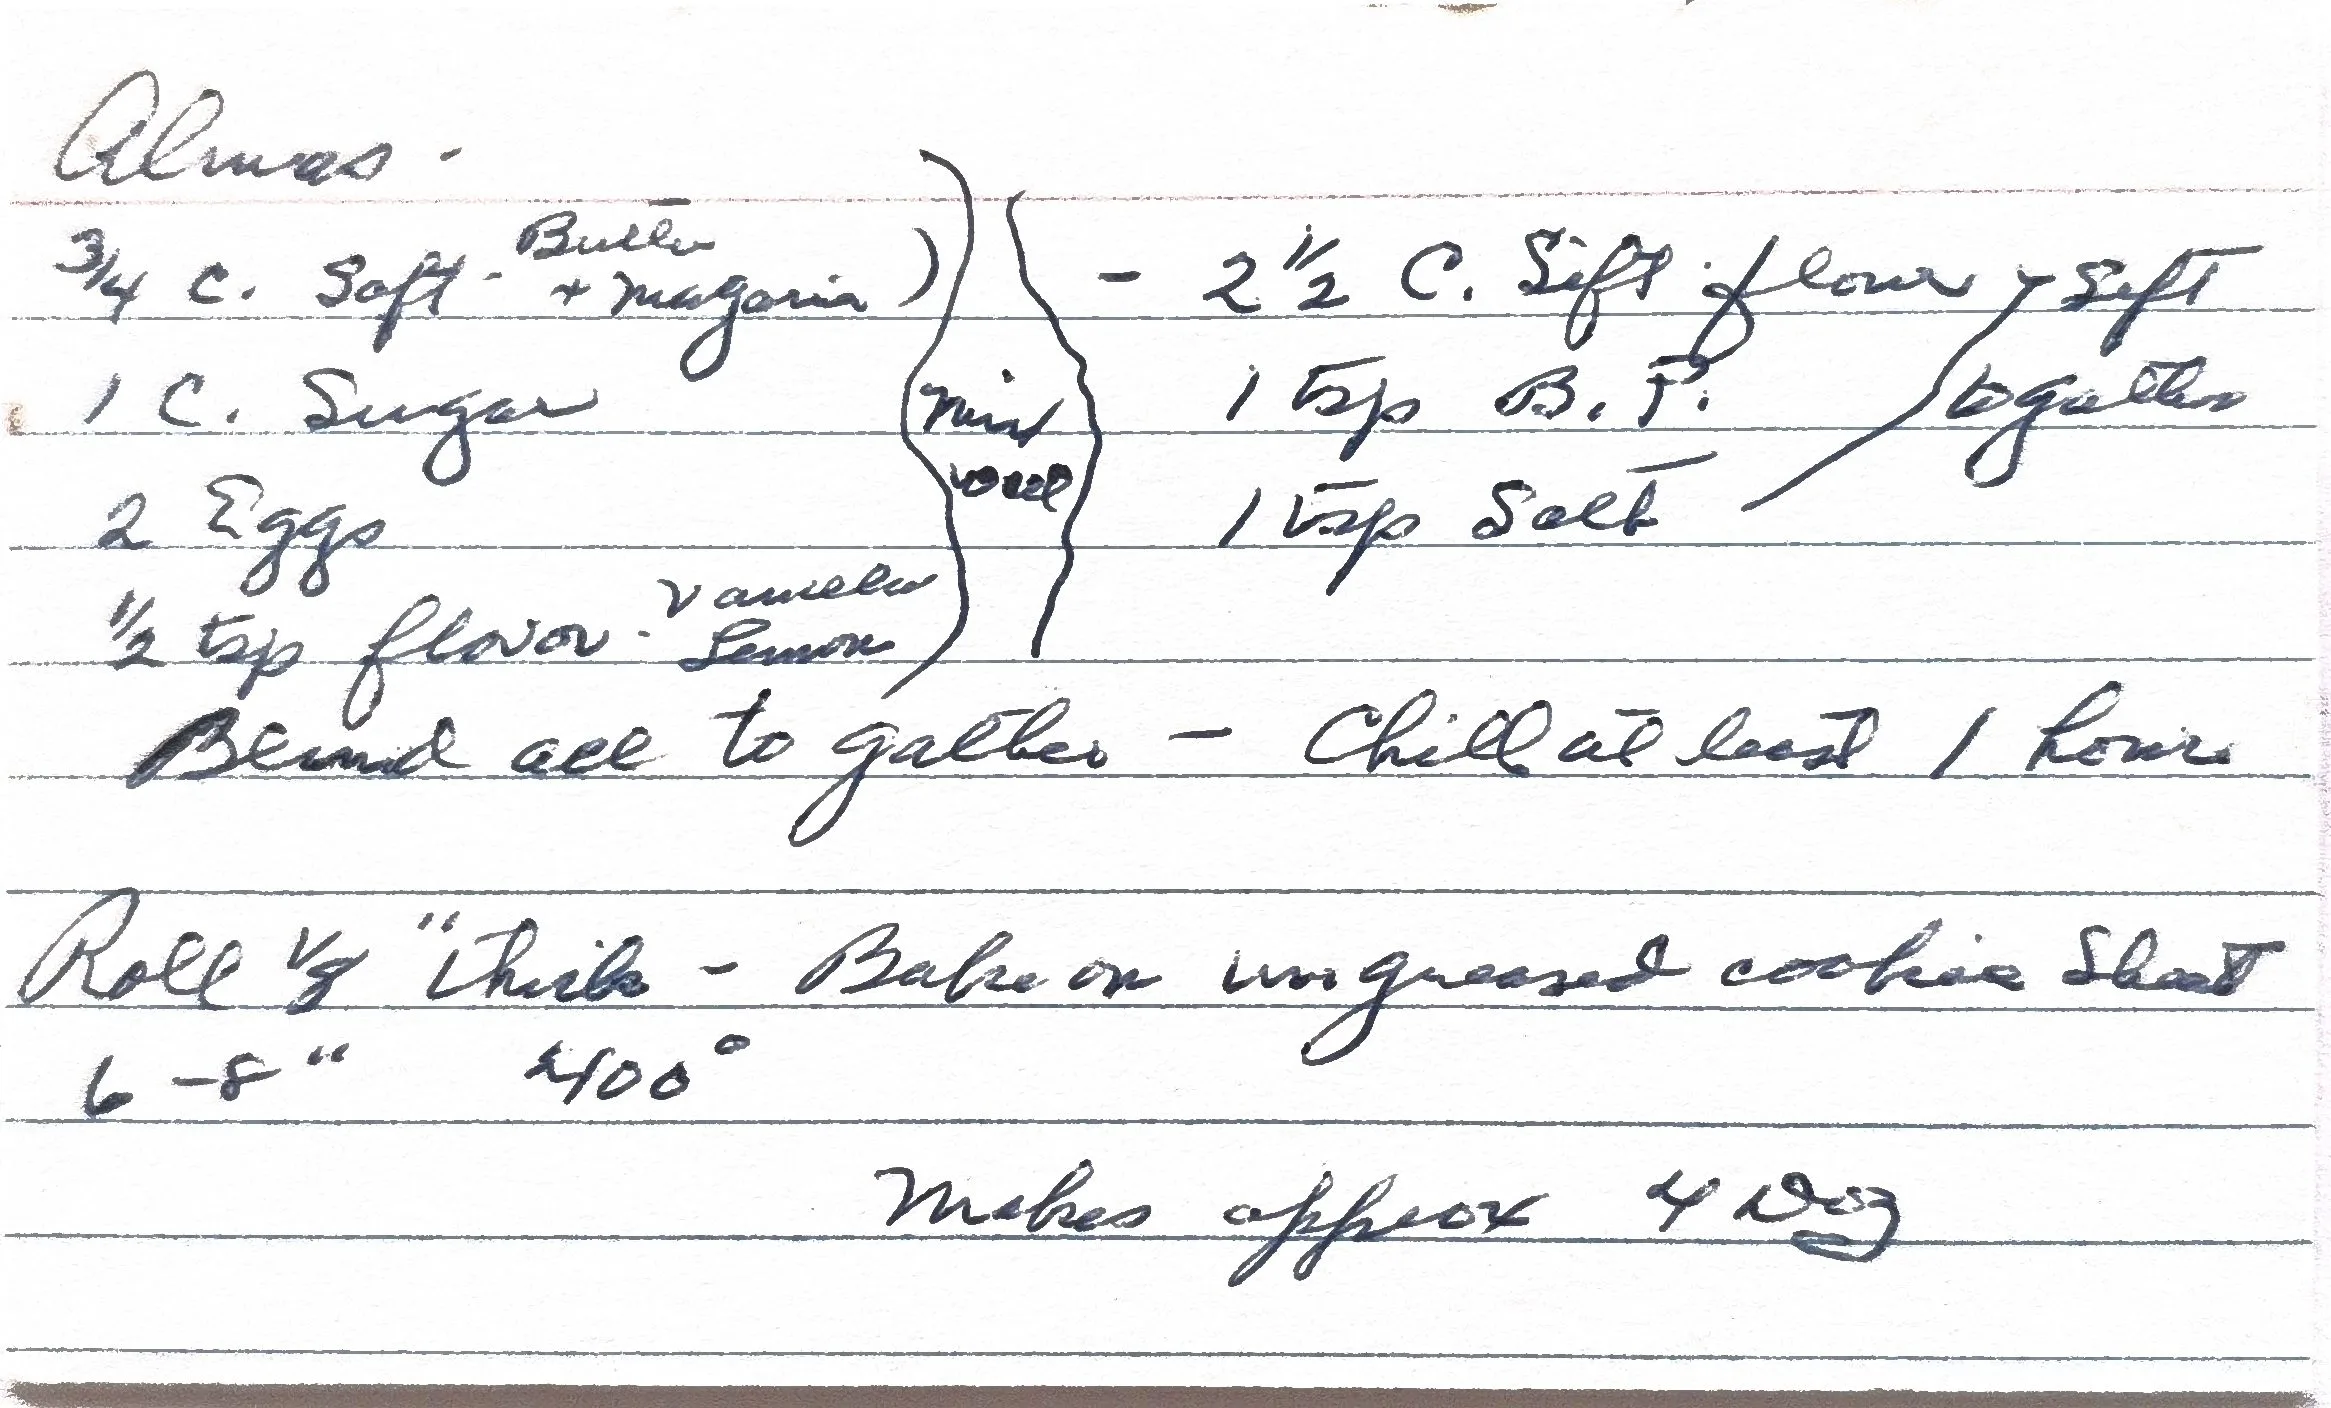 Almas -
3/4 c. Soft - Butter + Magarin
1 C. Sugar
2 Eggs
1/2 tsp flavor - Vanella Lemon
mix well
- 2 1/2 C. Sift flour
1 tsp B.P.
1 tsp Salt
Sift togather
Blend all to gather - Chill at least 1 hour
Roll 1/8 " thick - Bake on ungreased cookie Sheet
6 - 8 " 400°
Makes approx 4 Doz